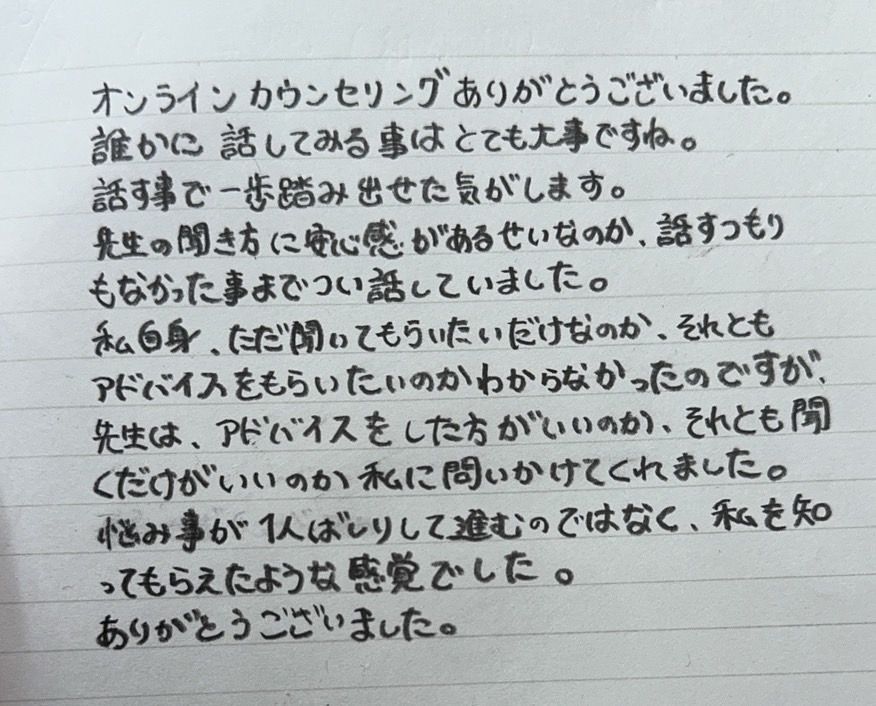 オンラインカウンセリングありがとうございました。
誰かに話してみる事はとても大事ですね。
話す事で一歩踏み出せた気がします。
先生の聞き方に安心感があるせいなのか、話すつもり
もなかった事までつい話していました。
私自身、ただ聞いてもらいたいだけなのか、それとも
アドバイスをもらいたいのかわからなかったのですが、
先生は、アドバイスをした方がいいのか、それとも聞
くだけがいいのか私に問いかけてくれました。
悩み事が1人ばしりして進むのではなく、私を知
ってもらえたような感覚でした。
ありがとうございました。